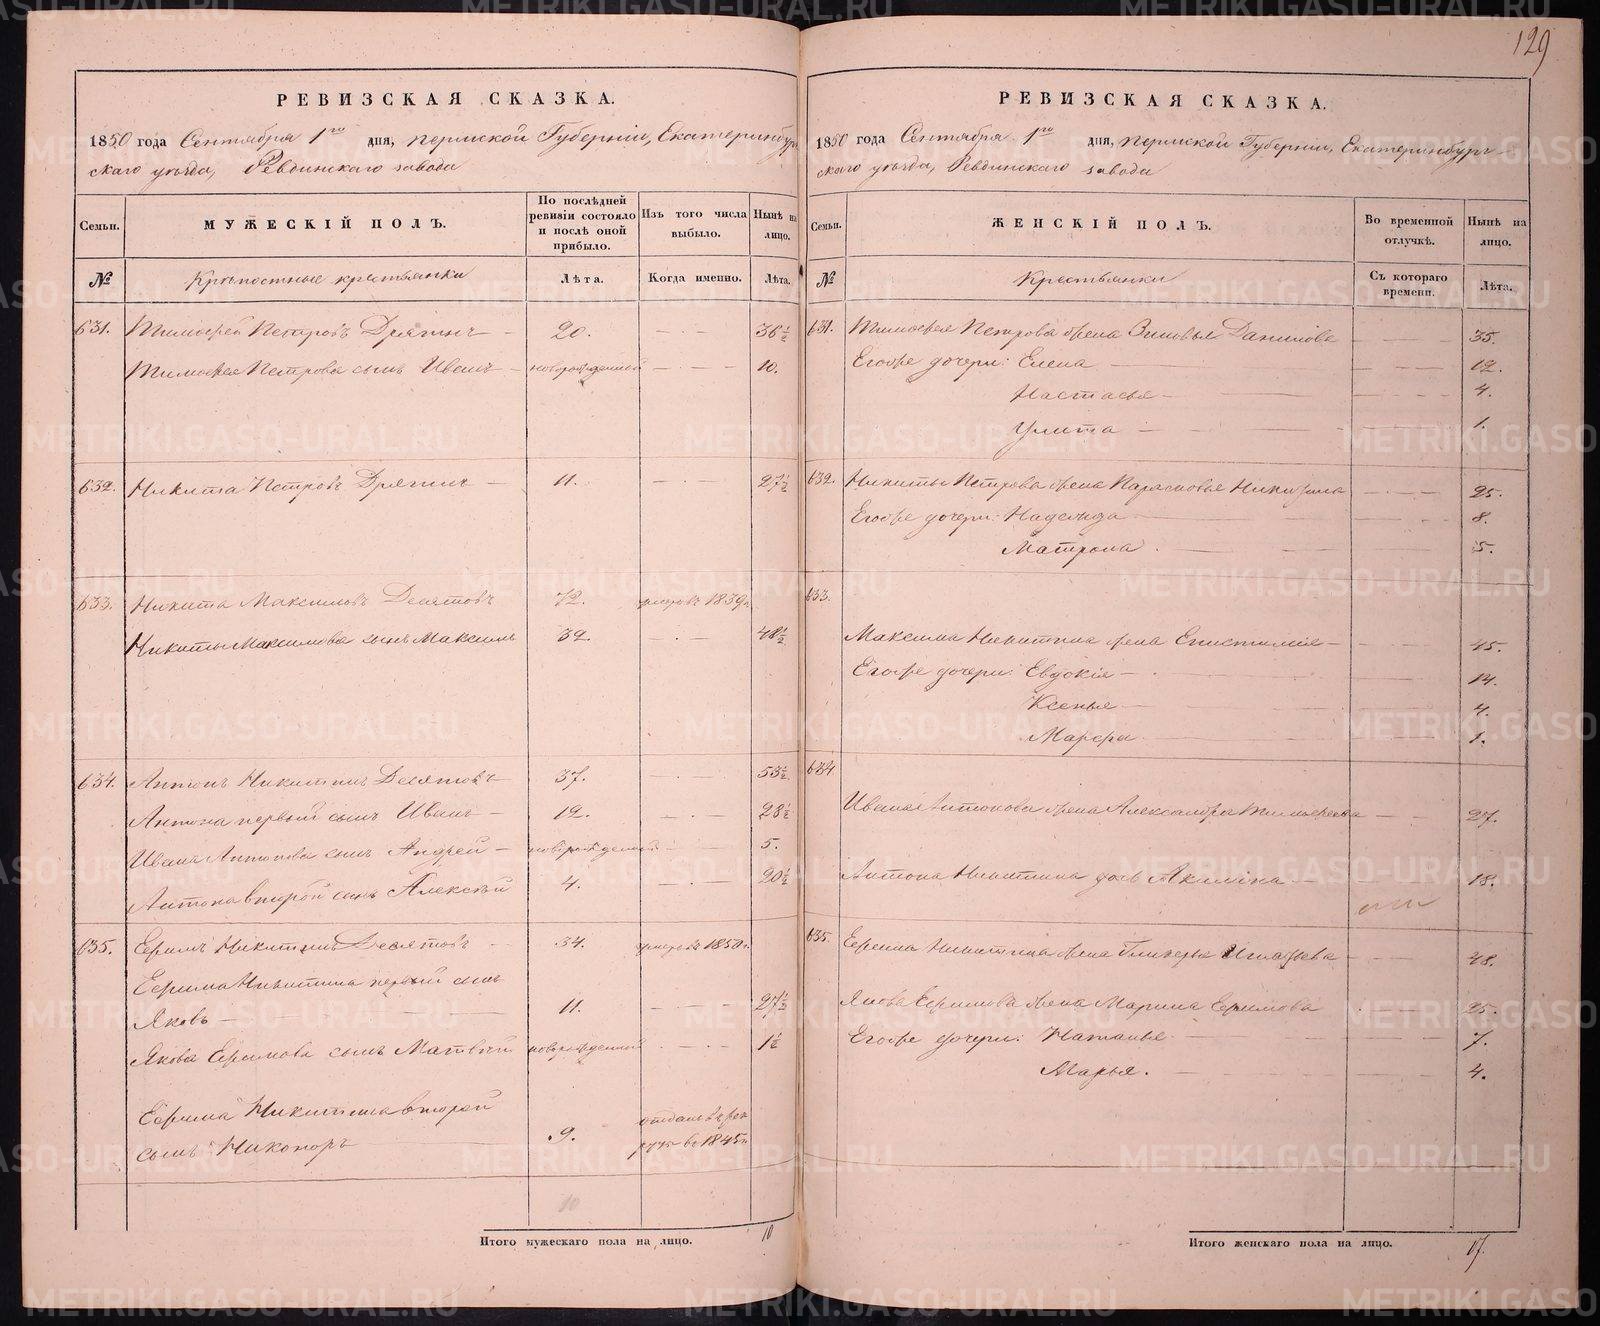 129
РЕВИЗСКАЯ СКАЗКА.
1850 года Сентября 1го дня, Пермской Губерніи, Екатеринбург
скаго уѣзда, Ревдинскаго завода
Семьи. МУЖЕСКІЙ ПОЛЪ. По послѣдней ревизіи состояло и послѣ оной прибыло. Изъ того числа выбыло. Нынѣ на лицо.
№ Крѣпостные крестьянки Лѣта. Когда именно. Лѣта.
631. Тимофей Петровъ Дрягинъ 20. 36½
Тимофея Петрова сынъ Иванъ новорожденной 10.
632. Никита Петровъ Дрягинъ 11. 27½
633. Никита Максимовъ Десятовъ 72. умеръ въ 1839 г.
Никиты Максимова сынъ Максимъ 32. 48½
634. Антонъ Никитинъ Десятовъ 37. 53½
Антона первый сынъ Иванъ 12. 28½
Ивана Антонова сынъ Андрей новорожденной 5.
Антона второй сынъ Алексѣй 4. 20½
635. Ефимъ Никитинъ Десятовъ 34. умеръ въ 1850 г.
Ефима Никитина первый сынъ
Яковъ 11. 27½
Якова Ефимова сынъ Матвѣй новорожденной 1½
Ефима Никитина второй
сынъ Никоноръ 9. отданъ въ рек
руты въ 1845 г.
10
Итого мужескаго пола на лицо. 10
РЕВИЗСКАЯ СКАЗКА.
1850 года Сентября 1го дня, Пермской Губерніи, Екатеринбург
скаго уѣзда, Ревдинскаго завода
Семьи. ЖЕНСКІЙ ПОЛЪ. Во временной отлучкѣ. Нынѣ на лицо.
№ Крестьянки Съ котораго времени. Лѣта.
631. Тимофея Петрова жена Зиновья Данилова 35.
Егоже дочери: Елена 12.
Настасья 4.
Улита 1.
632. Никиты Петрова жена Парасковья 25.
Егоже дочери: Надежда 8.
Матрона. 5.
633.
Максима Никитина жена Епистимія 45.
Егоже дочери: Евдокія 14.
Ксенья 4.
Марфа 1.
634
Ивана Антонова жена Александра Тимофеева 27.
Антона Никитина дочь Акилина 18.
635. Ефима Никитина жена Гликерья Игнатьева 48.
Якова Ефимова жена Марина Ефимова 25.
Егоже дочери: Наталья 7.
Марья. 4.
Итого женскаго пола на лицо. 17
METRIKI.GASO-URAL.RU